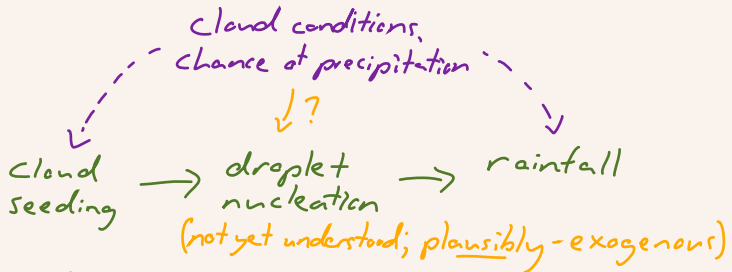 cloud conditions,
chance of precipitation
?
cloud
seeding
droplet
nucleation
rainfall
(not yet understood; plausibly-exogenous)